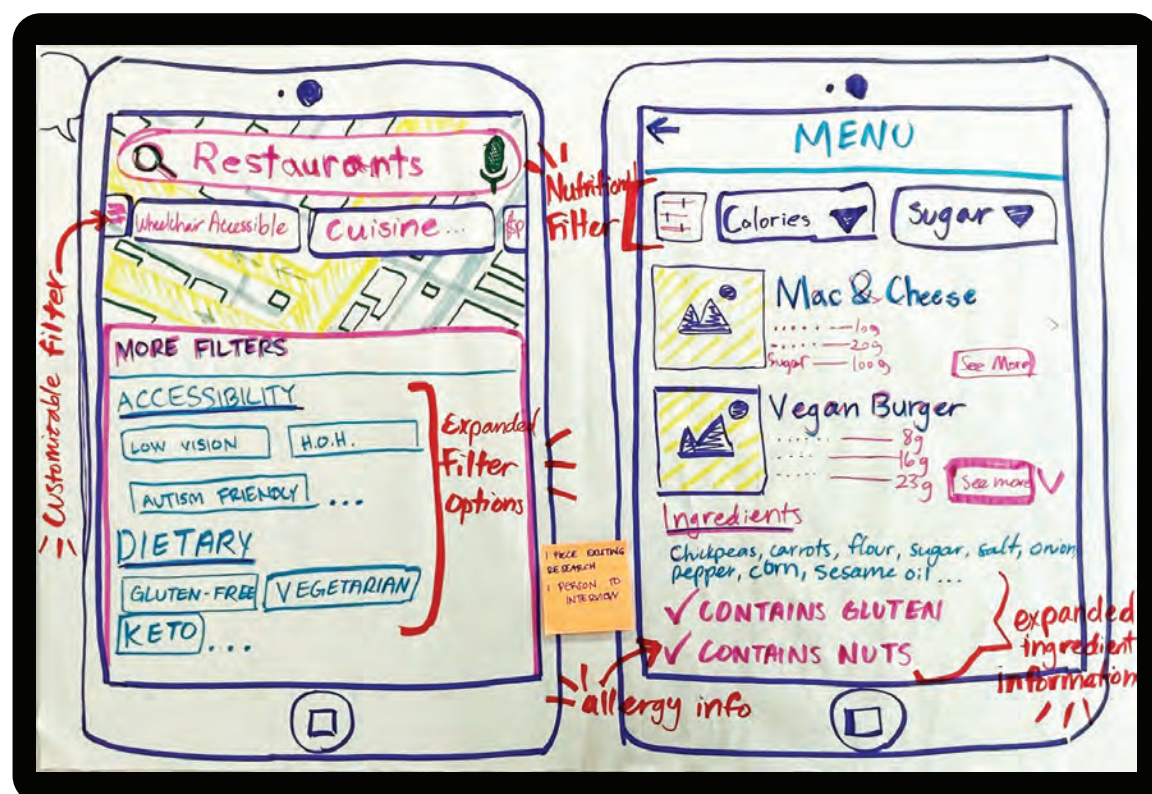 Restaurants
Wheelchair Accessible
Cuisine...
Customizable Filter
MORE FILTERS
ACCESSIBILITY
LOW VISION
H.O.H.
AUTISM FRIENDLY ...
DIETARY
GLUTEN-FREE
VEGETARIAN
KETO ...
Expanded
Filter
Options
Nutrition
Filter
1 PIECE EXISTING
RESEARCH
1 PERSON TO
INTERVIEW
MENU
Calories
Sugar
Mac & Cheese
10g
20g
Sugar 100g
See More
Vegan Burger
8g
16g
23g
See more
Ingredients
Chickpeas, carrots, flour, sugar, salt, onion,
pepper, corn, sesame oil ...
✓ CONTAINS GLUTEN
✓ CONTAINS NUTS
allergy info
expanded
ingredient
information